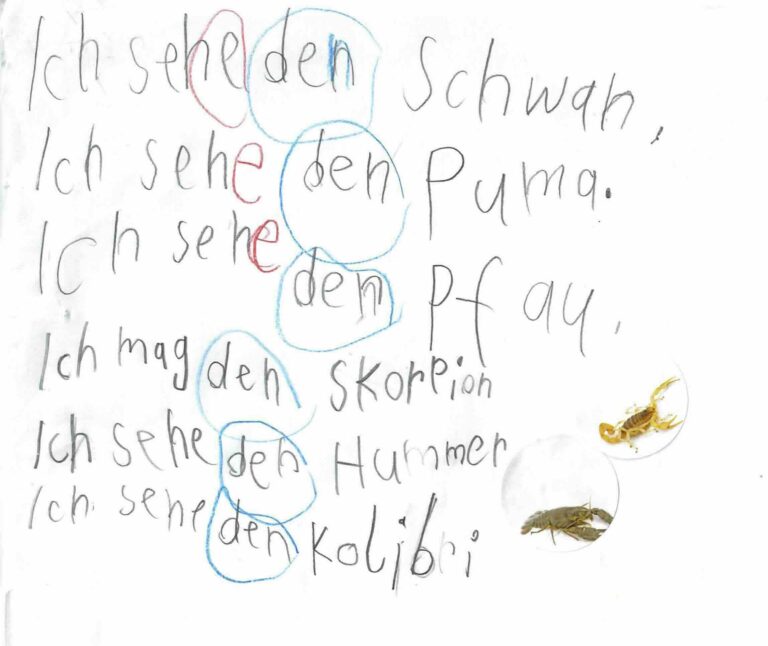 Ich sehe den Schwan.
Ich sehe den Puma.
Ich sehe den Pfau.
Ich mag den Skorpion
Ich sehe den Hummer
Ich sehe den Kolibri